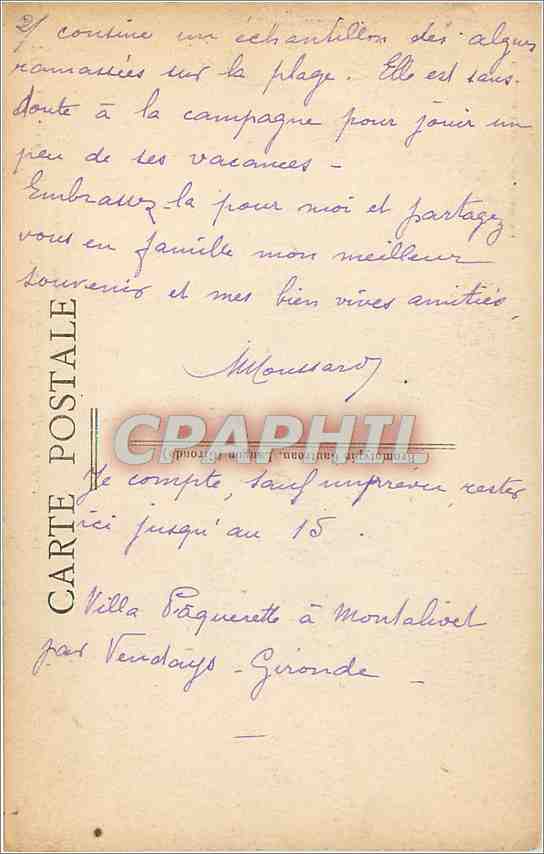 2/ cousine un échantillon des algues
ramassées sur la plage. Elle est sans-
doute à la campagne pour jouir un
peu de ses vacances -
Embrassez-la pour moi et partagez
vous en famille mon meilleur
souvenir et mes bien vives amitiés
MMoussard
CARTE POSTALE
CPAPHIL
Bromotypie Gautreau, Langon (Gironde)
Je compte, sauf imprévu, rester
ici jusqu'au 15.
Villa Pâquerette à Montalivet
par Vendays - Gironde -